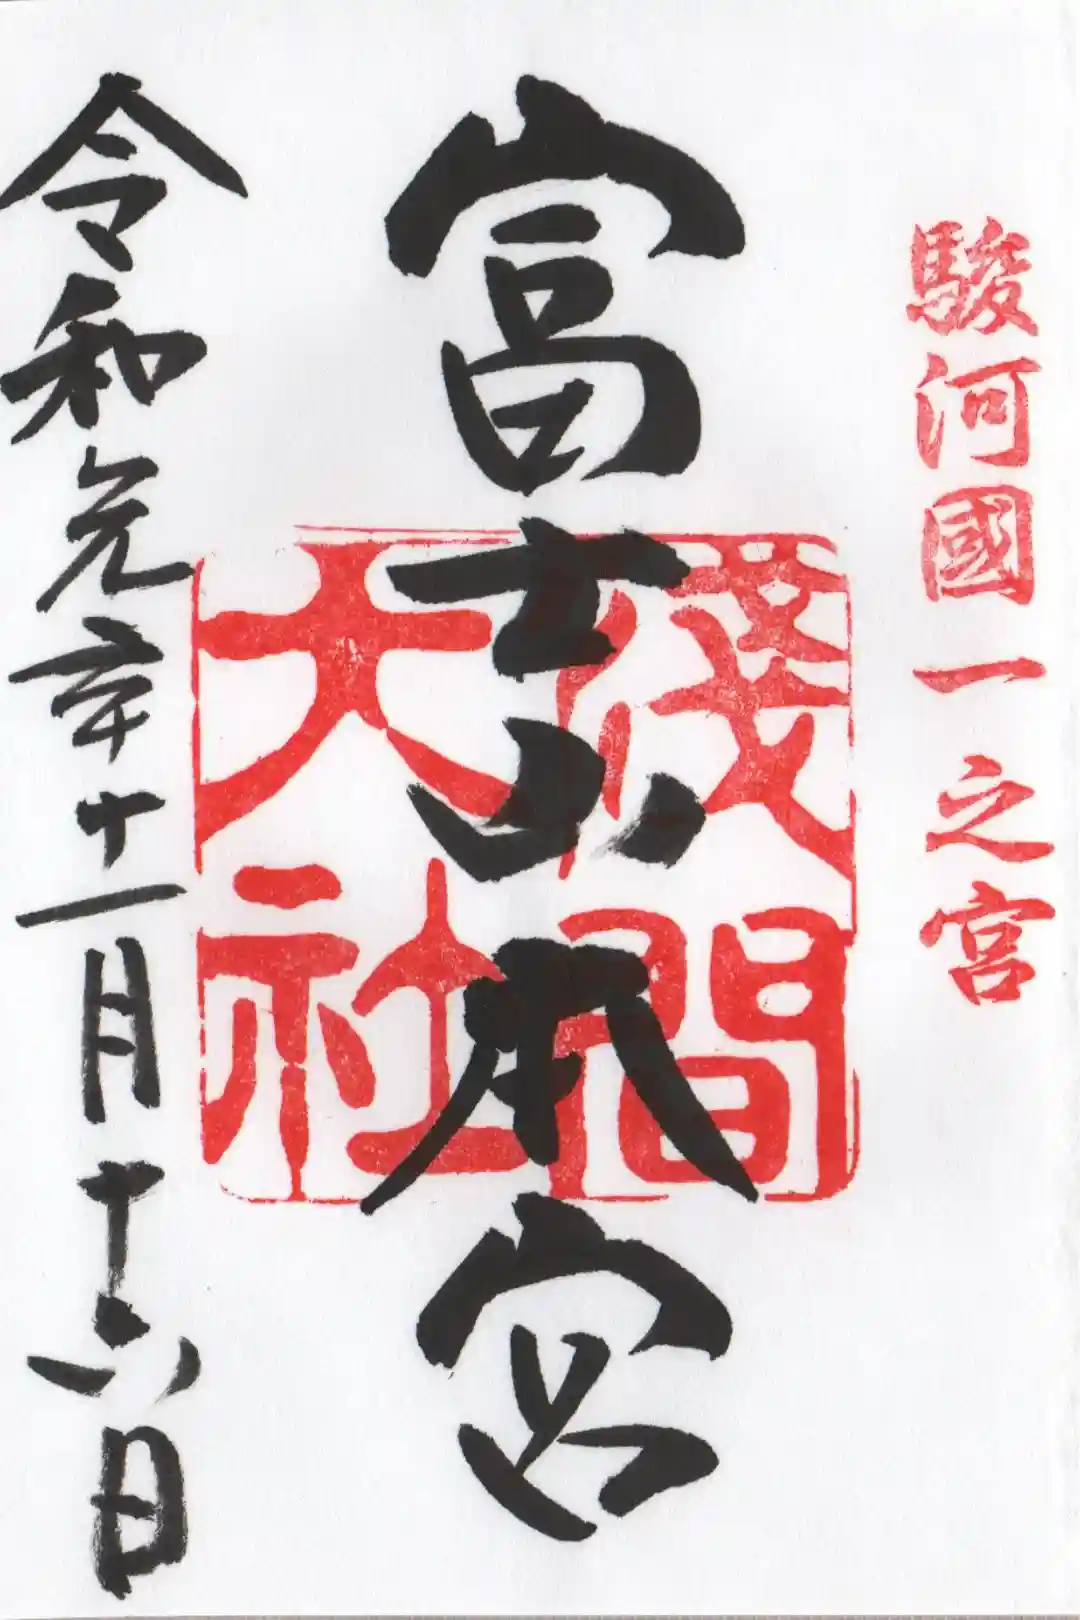 駿河國一之宮
富士山本宮
淺間
大社
令和元年十一月十六日